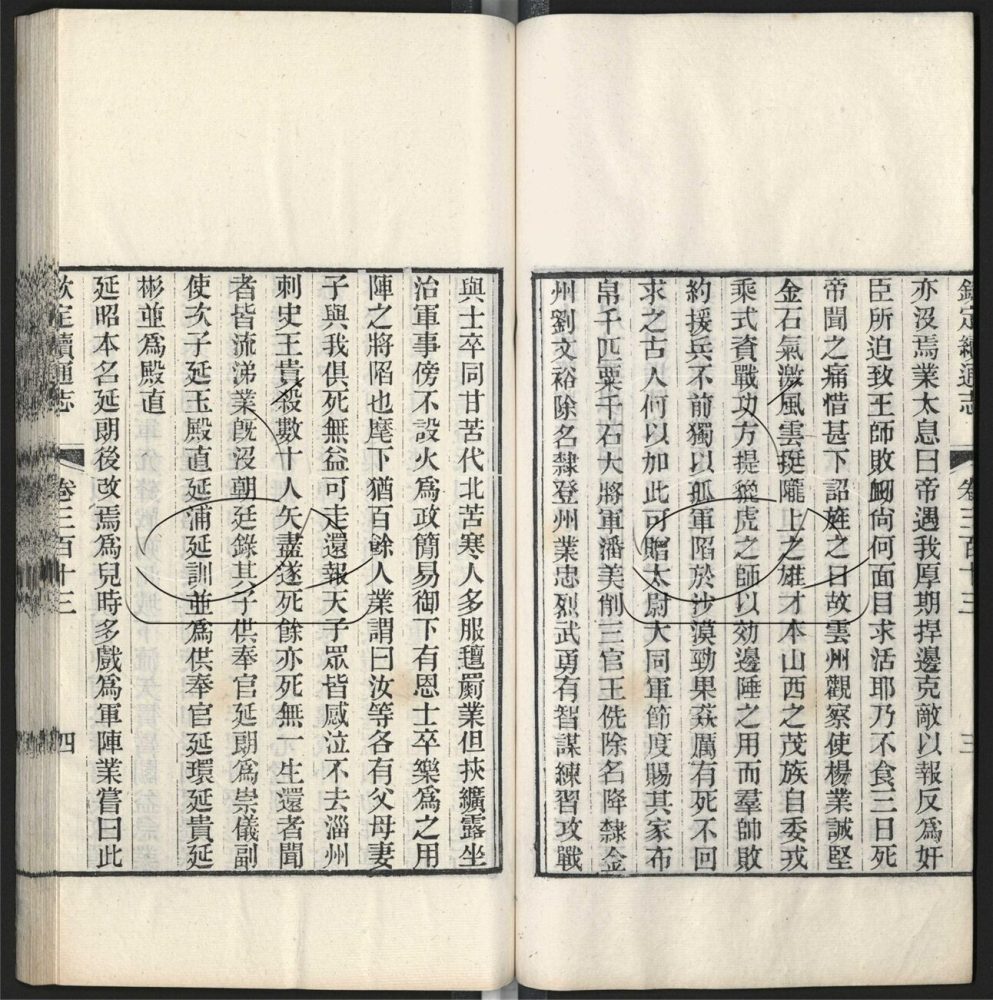 欽定續通志 卷三百十三 三
亦沒焉業太息曰帝遇我厚期捍邊克敵以報反爲奸
臣所迫致王師敗衂尙何面目求活耶乃不食三日死
帝聞之痛惜甚下詔旌之曰故雲州觀察使楊業誠堅
金石氣激風雲挺隴上之雄才本山西之茂族自委戎
乘式資戰功方提貔虎之師以効邊陲之用而羣帥敗
約援兵不前獨以孤軍陷於沙漠勁果猋厲有死不回
求之古人何以加此可贈太尉大同軍節度賜其家布
帛千匹粟千石大將軍潘美削三官王侁除名降隸金
州劉文裕除名隸登州業忠烈武勇有智謀練習攻戰
與士卒同甘苦代北苦寒人多服氊罽業但挾纊露坐
治軍事傍不設火爲政簡易御下有恩士卒樂爲之用
陣之將陷也麾下猶百餘人業謂曰汝等各有父母妻
子與我俱死無益可走還報天子眾皆感泣不去淄州
刺史王貴殺數十人矢盡遂死餘亦死無一生還者聞
者皆流涕業旣沒朝廷錄其子供奉官延朗爲崇儀副
使次子延玉殿直延浦延訓並爲供奉官延環延貴延
彬並爲殿直
延昭本名延朗後改焉爲兒時多戲爲軍陣業嘗曰此
欽定續通志 卷三百十三 四